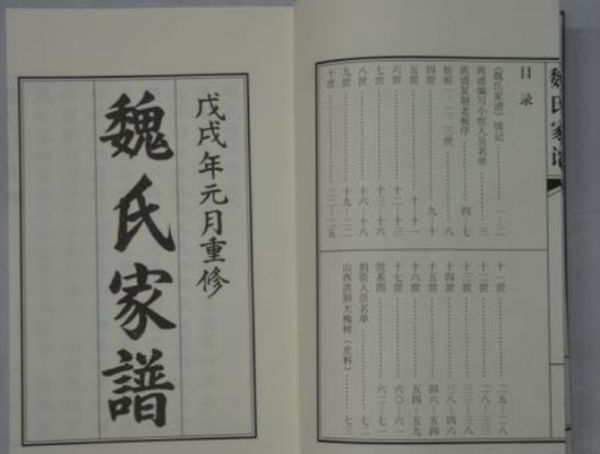 戊戌年元月重修
魏氏家谱
目录
《魏氏家谱》续记……一—二
族谱编写小组人员名单……三
族谱复制老板序……四—七
始祖一、二、三世……八
四世……九—十
五世……十—十一
六世……十二—十三
七世……十三—十六
八世……十六—十八
九世……十九—二二
十世……二二—二五
十一世……二五—二八
十二世……二八—三三
十三世……三三—三八
十四世……三八—四六
十五世……四六—五四
十六世……五四—五九
十七世……六〇—六一
世系图……六二—七一
捐资人员名单……七二
山西洪洞大槐树（史料）……七三
魏氏家谱